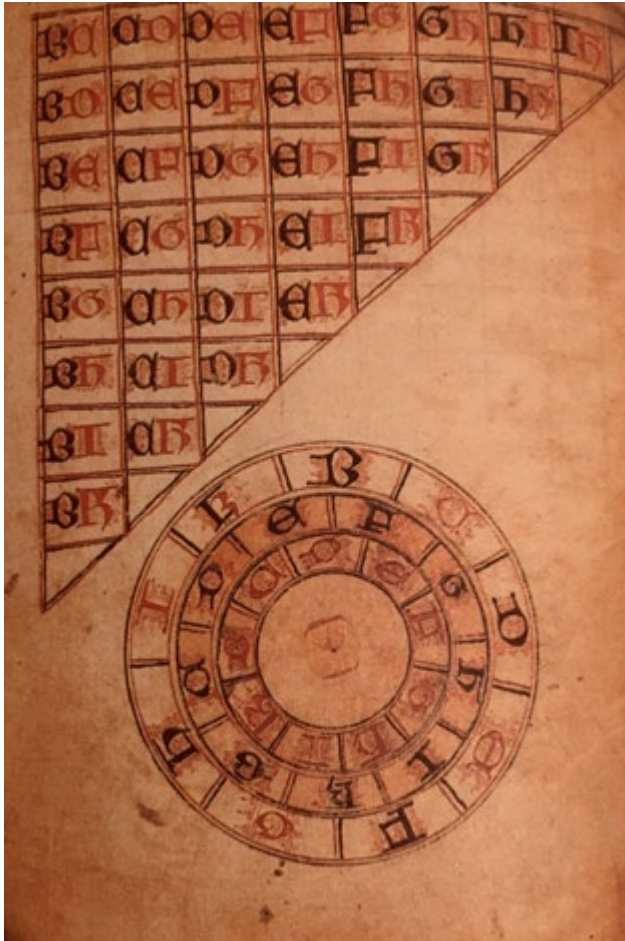 BC CD DE EF FG GH HI IK
BD CE DF EG FH GI HK
BE CF DG EH FI GK
BF CG DH EI FK
BG CH DI EK
BH CI DK
BI CK
BK
B C D E F G H I K
E F G H I K B C D
D E F G H I K B C